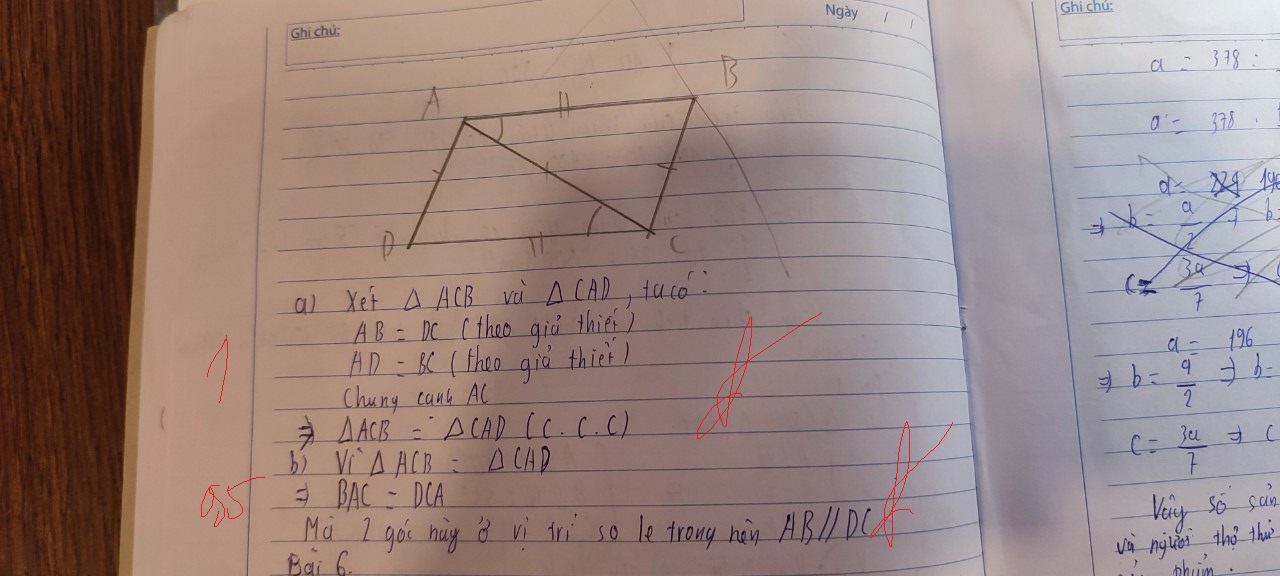 Ghi chú:
Ngày / /
A
B
D
C
a) Xét Δ ACB và Δ CAD, ta có:
AB = DC (theo giả thiết)
AD = BC (theo giả thiết)
Chung cạnh AC
⇒ ΔACB = ΔCAD (C.C.C)
1
b) Vì Δ ACB = Δ CAD
⇒ BAC = DCA
0,5
Mà 2 góc này ở vị trí so le trong nên AB//DC
Bài 6.
Ghi chú:
a = 378 :
a = 378 .
⇒ b = a/2
C = 3a/7 ⇒
a = 196
⇒ b = a/2 ⇒ b =
C = 3a/7 ⇒ C
Vậy số sản
và người thợ thứ
phẩm.